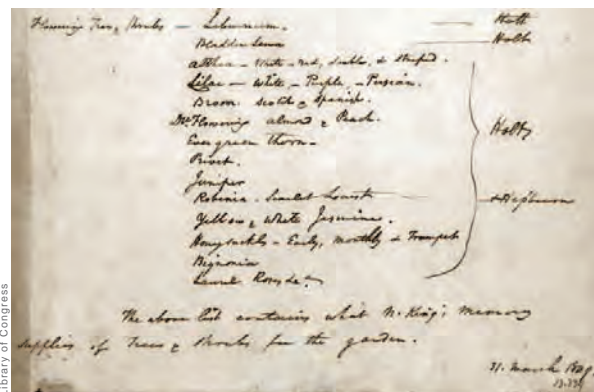 Flowering Trees & Shrubs — Liburnum. — Holt
Bladder Senna — Holt
Althea — White - red, double, & striped.
Lilac — White - Purple - Persian.
Broom Scotch & Spanish.
Dble Flowering almond & Peach.
Evergreen Thorn — Holt
Privet.
Juniper
Robinia - Scarlet Locust — & Hepburn
Yellow & White Jasmine.
Honeysuckle - Early, Monthly & Trumpet
Bignonia
Laurel
The above list contains what N. King's memory
supplies of Trees & Shrubs for the garden.
31. March
Library of Congress